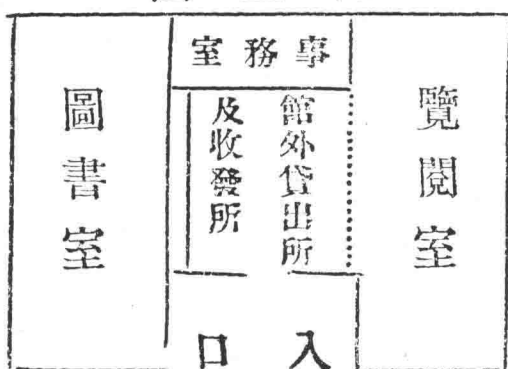 覽閱室
事務室
館外貸出所
及收發所
圖書室
入口